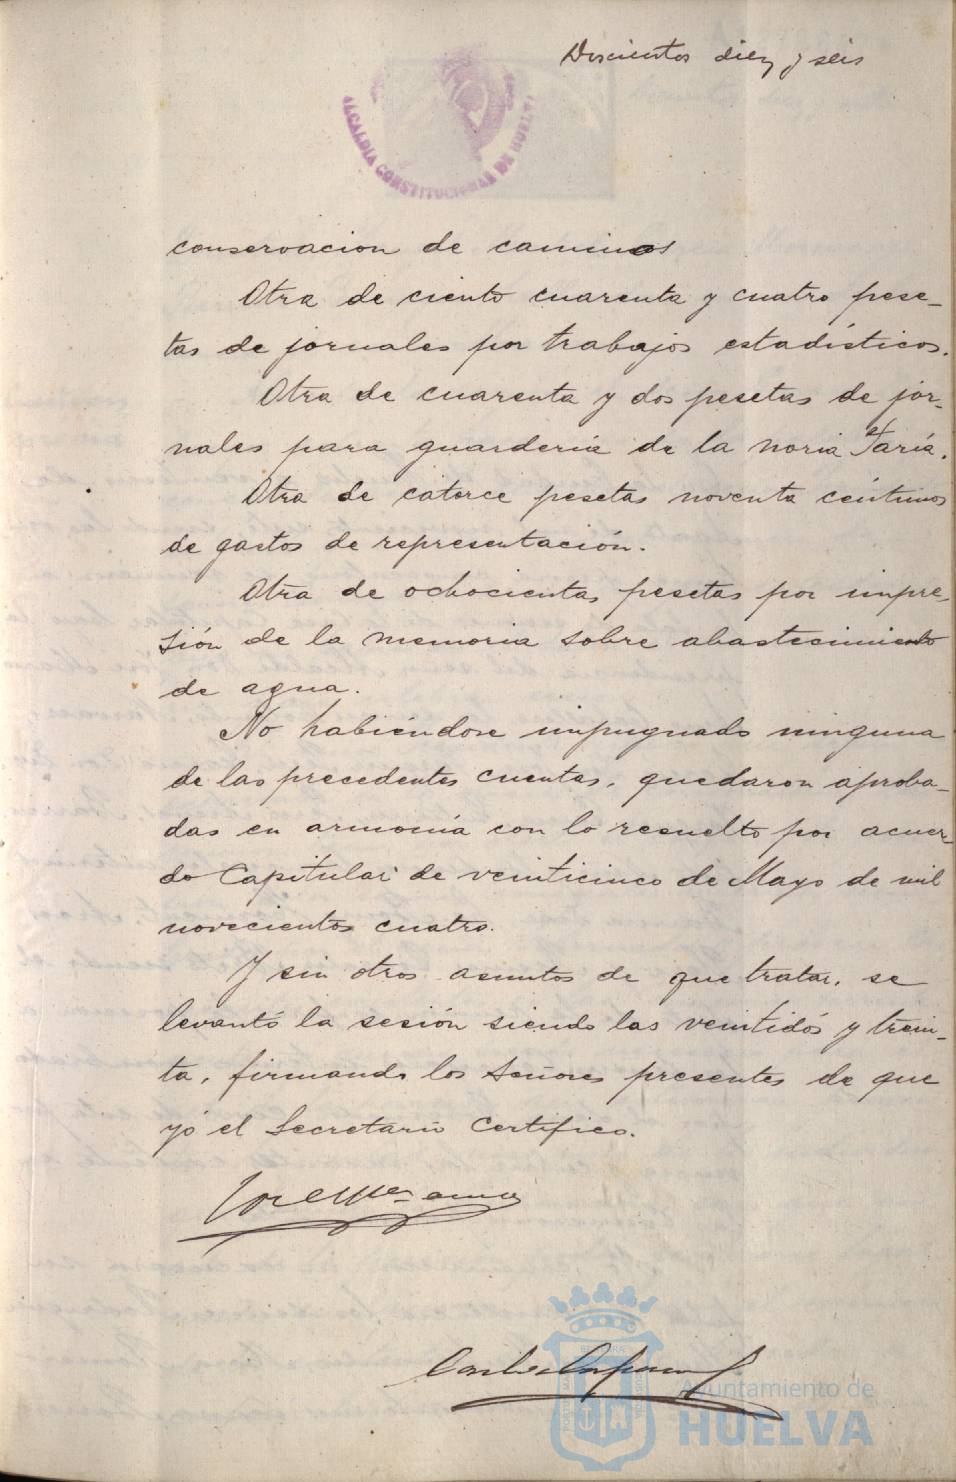 Doscientos diez y seis
ALCALDIA CONSTITUCIONAL DE HUELVA
conservacion de caminos
Otra de ciento cuarenta y cuatro pese-
tas de jornales por trabajos estadísticos.
Otra de cuarenta y dos pesetas de jor-
nales para guarderia de la noria Taría.
Otra de catorce pesetas noventa céntimos
de gastos de representación.
Otra de ochocientas pesetas por impre-
sión de la memoria sobre abastecimiento
de agua.
No habiéndose impugnado ninguna
de las precedentes cuentas, quedaron aproba-
das en armonía con lo resuelto por acuer-
do Capitular de veinticinco de Mayo de mil
novecientos cuatro.
Y sin otros asuntos de que tratar, se
levantó la sesión siendo las veintidós y trein-
ta, firmando los Señores presentes de que
yó el Secretario Certifico.
Ayuntamiento de
HUELVA